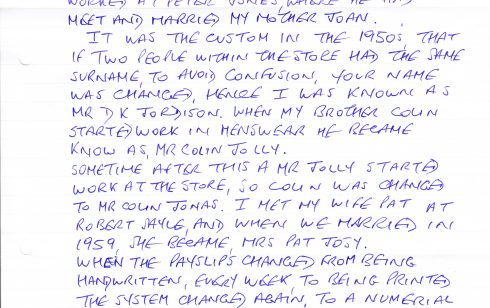 WORKED AT PETER JONES, WHERE HE HAD
MEET AND MARRIED MY MOTHER JOAN.
IT WAS THE CUSTOM IN THE 1950s, THAT
IF TWO PEOPLE WITHIN THE STORE HAD THE SAME
SURNAME, TO AVOID CONFUSION, YOUR NAME
WAS CHANGED, HENCE I WAS KNOWN AS
MR D K JORDISON. WHEN MY BROTHER COLIN
STARTED WORK IN MENSWEAR HE BECAME
KNOW AS, MR COLIN JOLLY.
SOMETIME AFTER THIS A MR JOLLY STARTED
WORK AT THE STORE, SO COLIN WAS CHANGED
TO MR COLIN JONAS. I MET MY WIFE PAT AT
ROBERT SAYLE, AND WHEN WE MARRIED IN
1959, SHE BECAME, MRS PAT JOSY.
WHEN THE PAYSLIPS CHANGED FROM BEING
HANDWRITTEN, EVERY WEEK, TO BEING PRINTED
THE SYSTEM CHANGED AGAIN, TO A NUMERIAL